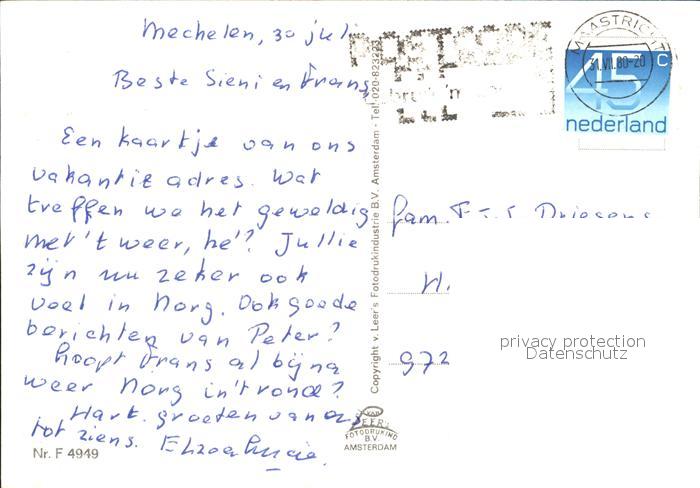 Mechelen, 30 juli
Beste Sieni en Frans,
Een kaartje van ons
vakantie adres. Wat
treffen we het geweldig
met 't weer, hè? Jullie
zijn nu zeker ook
veel in Norg. Ook goede
berichten van Peter?
hoopt Frans al bijna
weer Norg in 't rond?
Hart. groeten van ons
tot ziens.
Nr. F 4949
Copyright v. Leer's Fotodrukindustrie B.V. Amsterdam - Tel. 020-823223
VAN
LEER'S
FOTODRUKIND
B.V.
AMSTERDAM
MAASTRICHT
31.VII.80-20
45 C
nederland
fam.
H.
972
privacy protection
Datenschutz